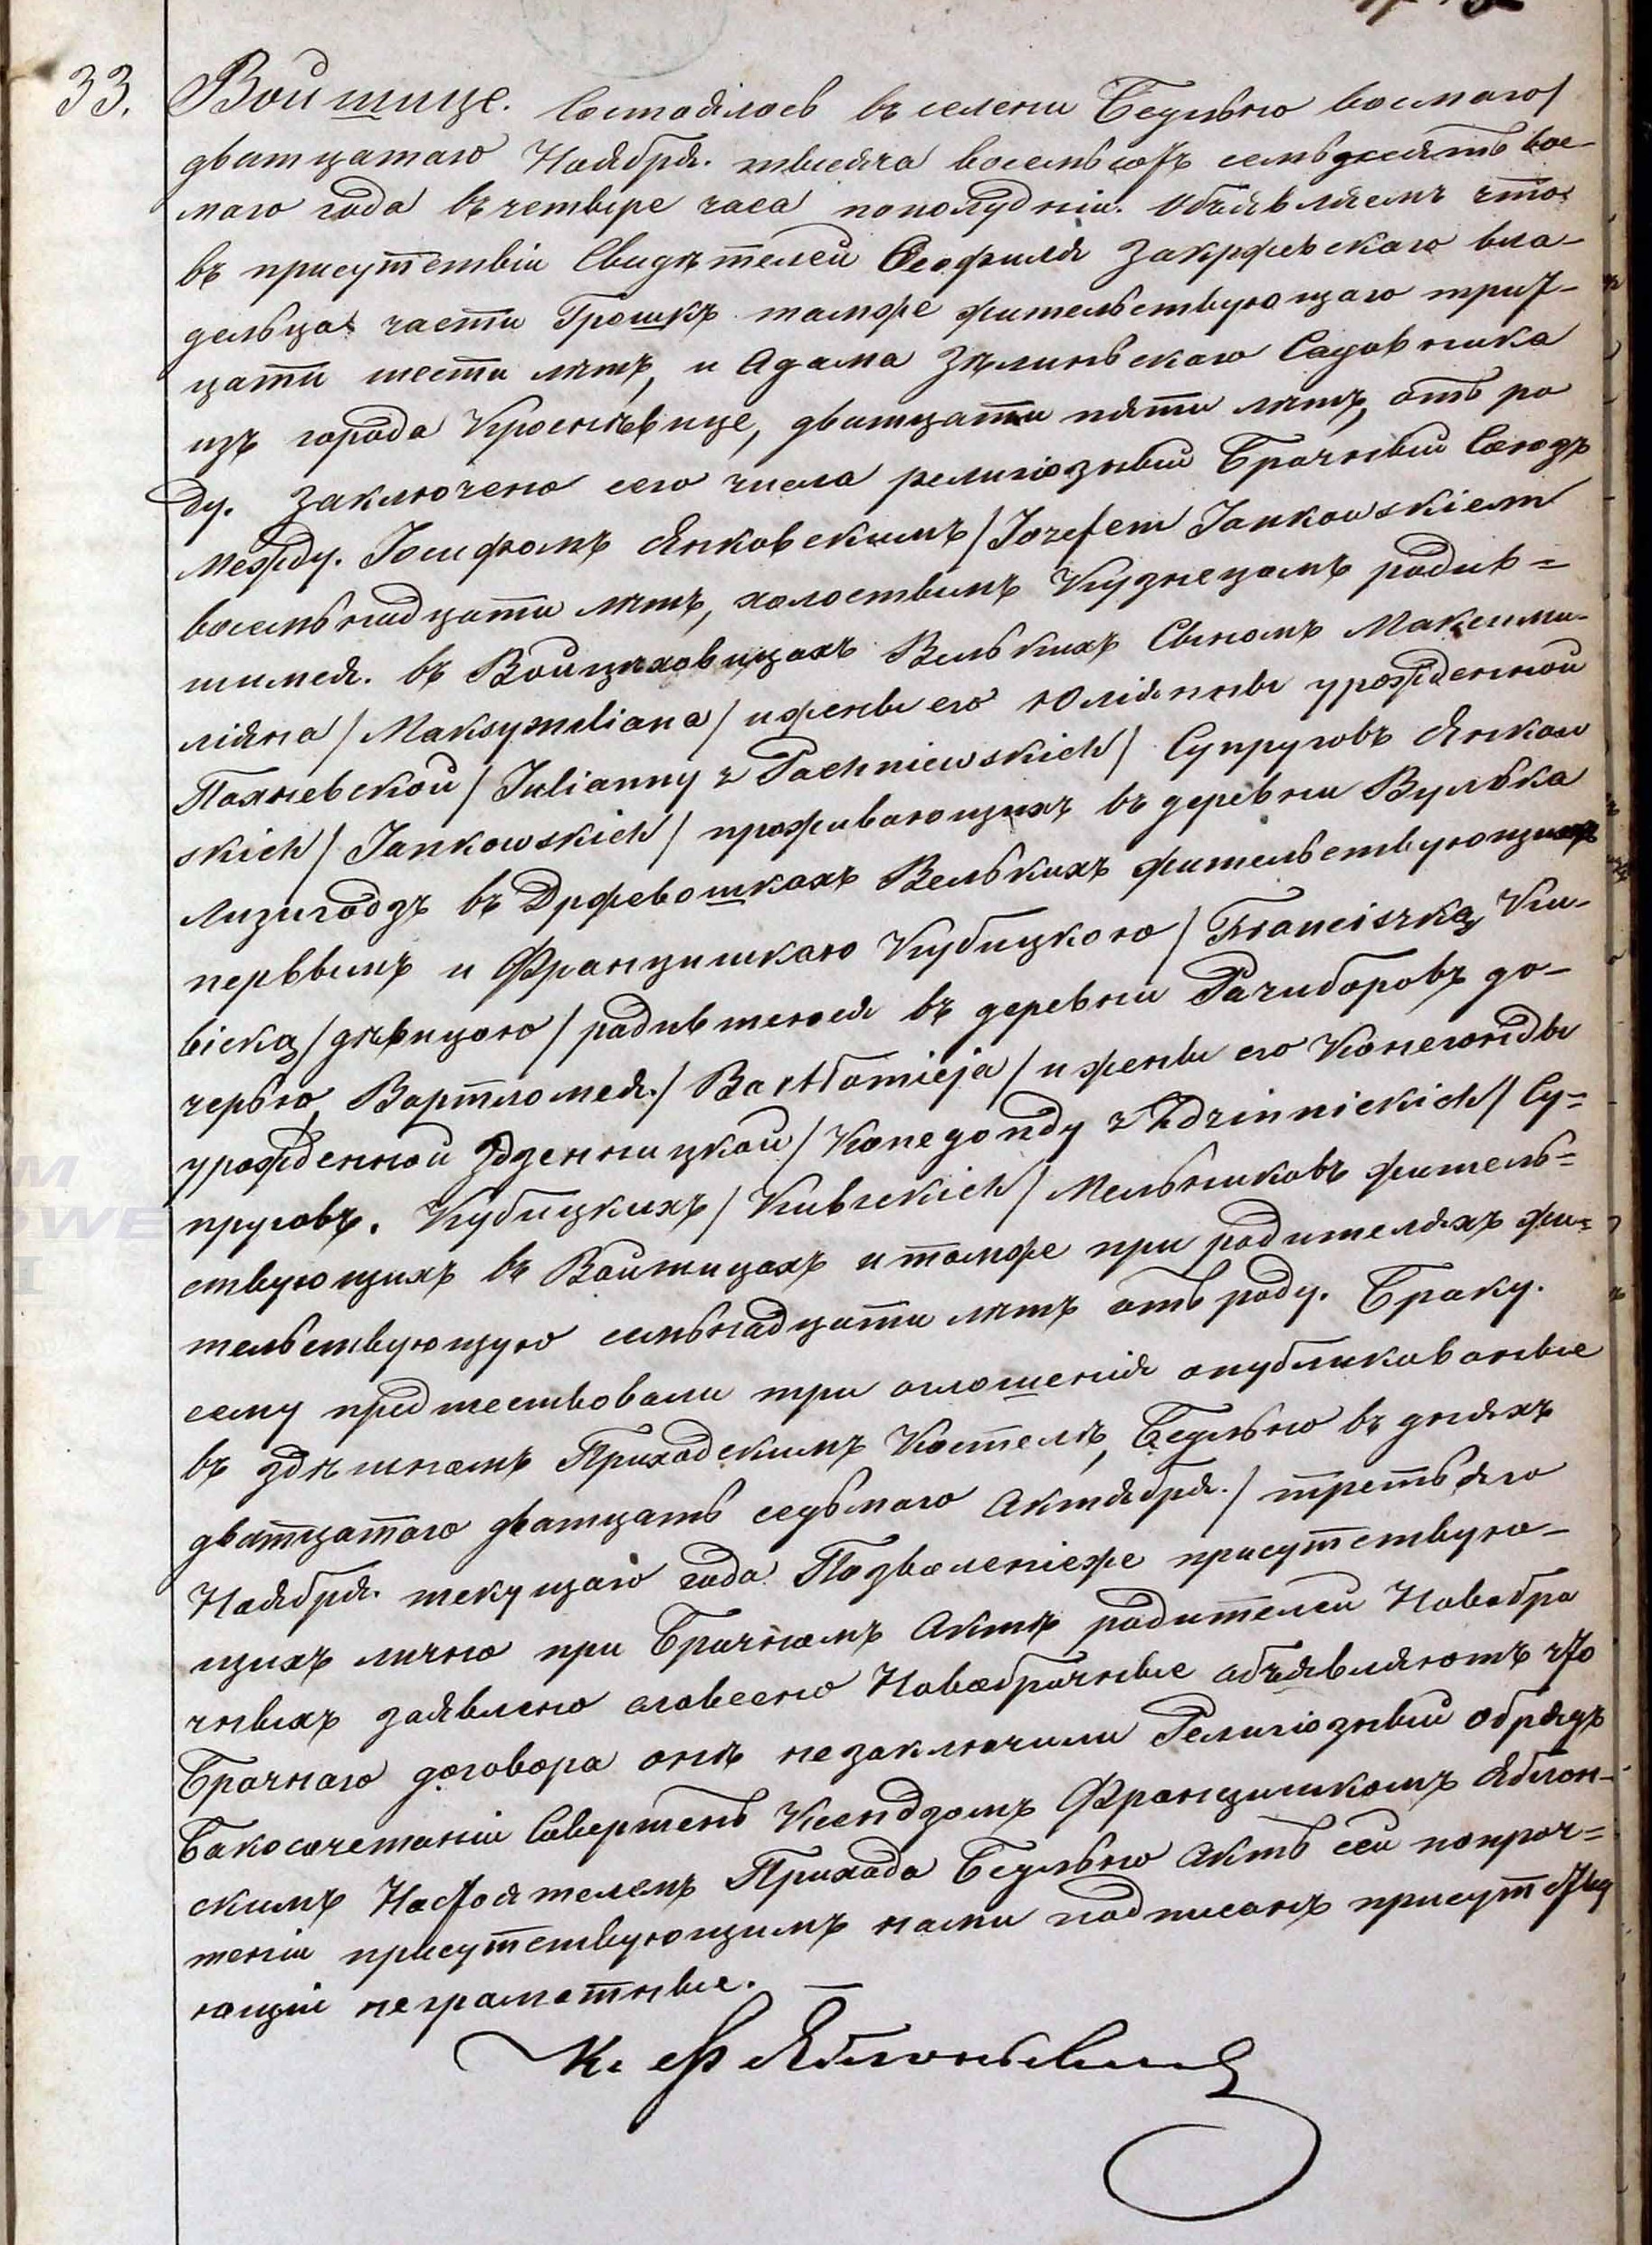 33. Войшице. Состоялось въ селени Бедльно восмаго/
дватцатаго Ноября. тысяча восемьсотъ семьдесятъ вос-
маго года въ четыре часа пополудніи. Объявляемъ что
въ присутствіи Свидѣтелей Ѳеофиля Закржевскаго вла-
дельца части Грошкъ тамже жительствующаго трид-
цати шести лѣтъ, и Адама Зѣлиньскаго Садовника
изъ города Кросневице, дватцати пяти лѣтъ, отъ ро
ду. Заключено сего числа религіозный Брачный Союзъ
между. Іосифомъ Янковскимъ/Jozefem Jankowskiem
восемьнадцати лѣтъ, холостымъ Кузнецомъ родив=
шимся. въ Войцѣховицахъ Вельких Сыномъ Максими-
ліяна/Maksymiliana/ и жены его Юліянны урожденной
Пахневской/Julianny z Pachniewskich/ Супруговъ Янков
skich/Jankowskich/ проживающихъ въ деревни Вулька
Лизигодзъ въ Држевошкахъ Вельких жительствующихъ
первымъ и Францишкаю Кубицкою/Franciszką Ku-
bicką/дѣвицою/родившеюся въ деревни Рачиборовъ до-
черью, Вартломея./Bartłomieja/ и жены его Конегонды
урожденной Здзенницкой/Konegondy z Zdzinnickich/ Су=
пруговъ. Кубицкихъ/Kubickich/ Мельниковъ житель=
ствующихъ въ Войшицахъ и тамже при родителяхъ жи=
тельствующую семьнадцати лѣтъ отъ роду. Браку.
сему предшествовали три оглошенія опубликованые
въ здѣшномъ Приходскимъ Костелѣ, Бедльно въ дняхъ
дватцатого дватцать седьмого Октября./третьяго
Ноября. текущаго года. Позволеніеже присутствую-
щихъ лично при Брачномъ Актѣ родителей Новобра
чныхъ заявлено словесно Новобрачные объявляютъ что
Брачнаго договора онѣ незаключили Религіозный обрядъ
Бакосочетаніи Совершенъ Ксендзомъ Францишкомъ Яблон-
скимъ Настоятелемъ Прихода Бедльно Актъ сей попроч=
теніи присутствующимъ нами подписанъ присутству
ющіи неграматные. —
К. Ф Яблоньскій